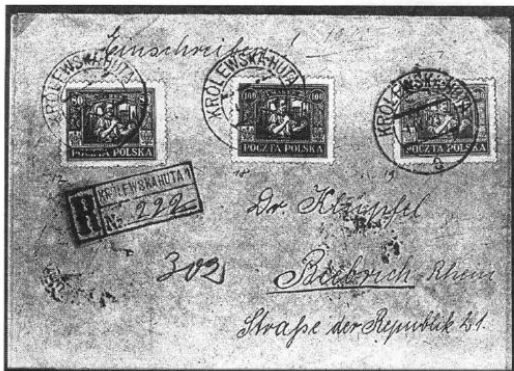 Einschreiben!
KRÓLEWSKA-HUTA
KRÓLEWSKA-HUTA
KRÓLEWSKA-HUTA
100 100
POCZTA POLSKA
POCZTA POLSKA
POCZTA POLSKA
R KRÓLEWSKA HUTA 1
№ 222
Dr. Klüpfel
302
Biebrich-Rhein
Straße der Republik